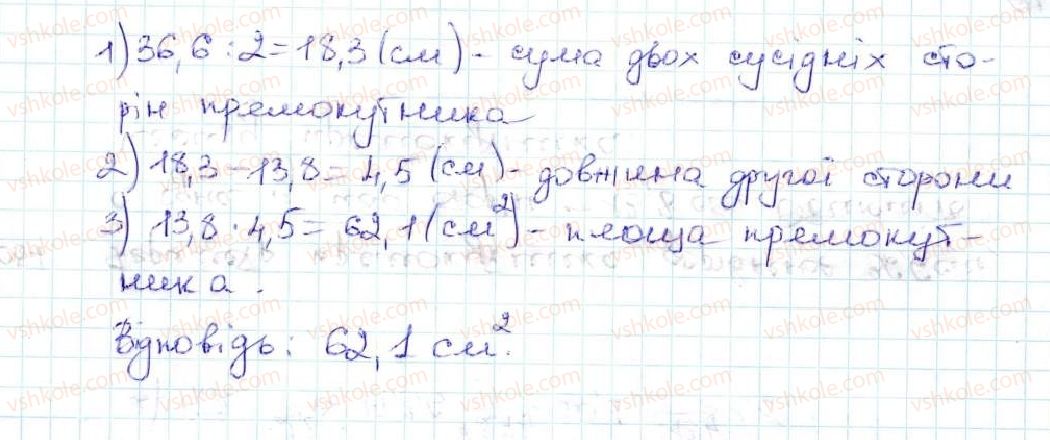 1) 36,6 : 2 = 18,3 (см) - сума двох сусідніх сто-
рін прямокутника
2) 18,3 - 13,8 = 4,5 (см) - довжина другої сторони
3) 13,8 · 4,5 = 62,1 (см²) - площа прямокут-
ника.
Відповідь: 62,1 см².